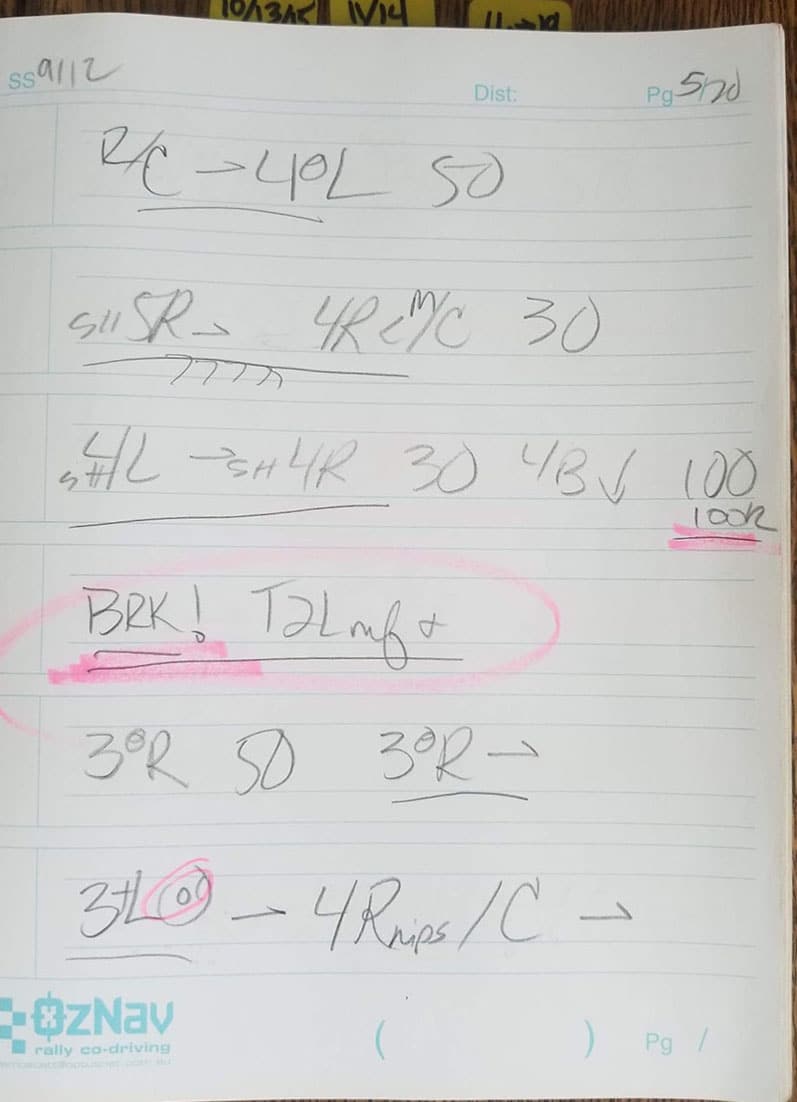 10/13/15 11/14
SS 9112 Dist: Pg 5/20
R/C → 4°L 50
SH 5R → 4R < M/C 30
SH 4L → SH 4R 30 4B ↓ 100
100R
BRK! T2L +
3°R 50 3°R →
3+L → 4R nips /C →
OzNav
rally co-driving
( ) Pg /